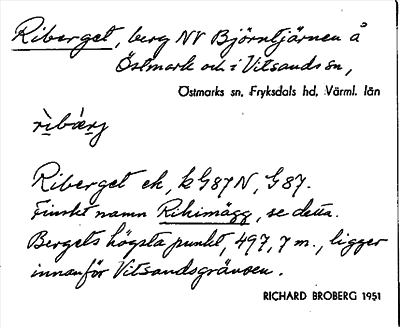 Riberget, berg NV Björntjärnen å
Östmark och i Vitsands sn,
Östmarks sn, Fryksdals hd, Värml. län
Riberget ek, k G87N, G87.
Finskt namn Rihimägg, se detta.
Bergets högsta punkt, 497,7 m., ligger
innanför Vitsandsgränsen.
RICHARD BROBERG 1951